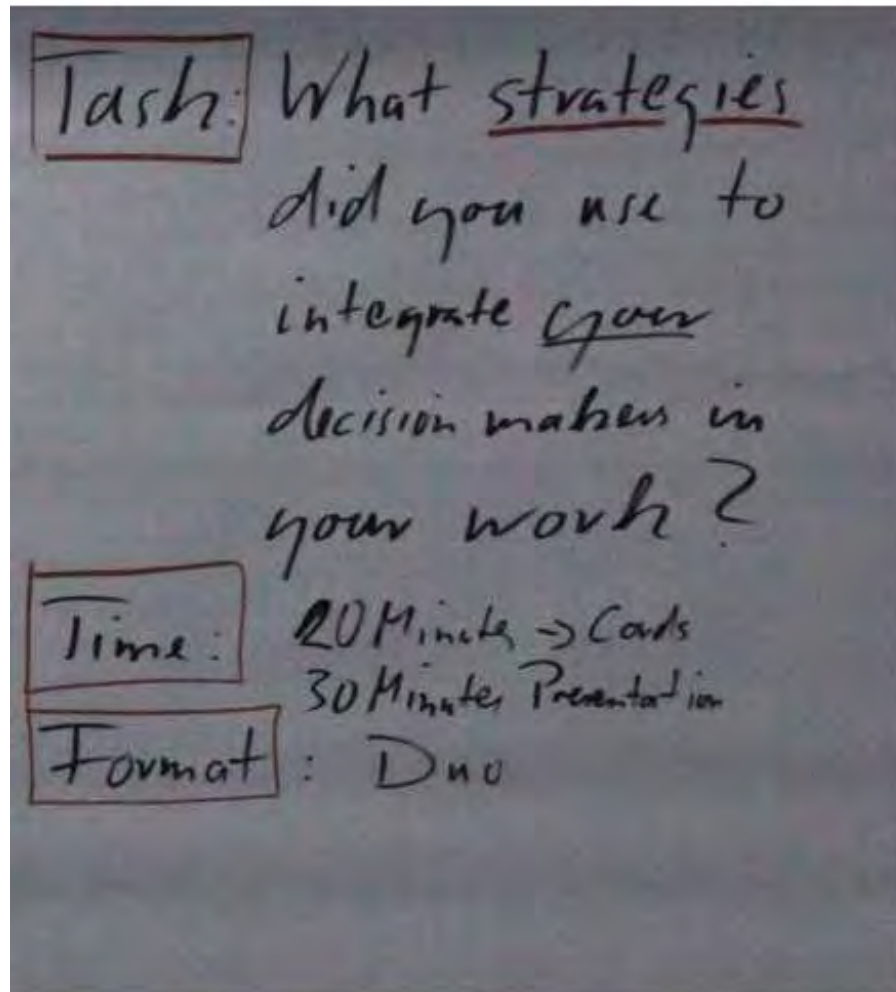 Task: What strategies
did you use to
integrate your
decision makers in
your work?
Time: 20 Minutes -> Cards
30 Minutes Presentation
Format: Duo